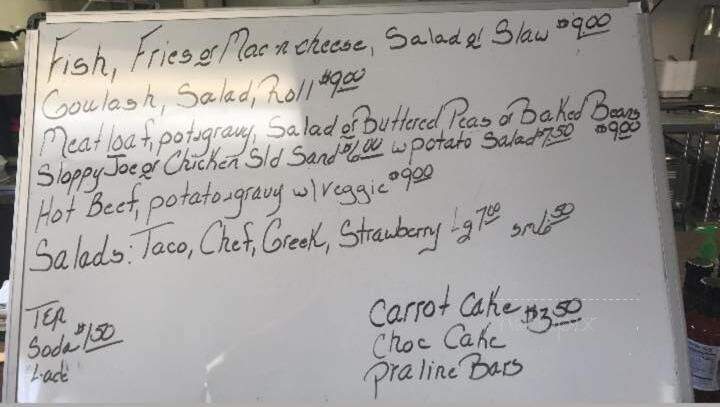 Fish, Fries or Mac n cheese, Salad or Slaw $9.00
Goulash, Salad, Roll $9.00
Meatloaf, pot&gravy, Salad or Buttered Peas or Baked Beans $9.00
Sloppy Joe or Chicken Sld Sand $6.00 w potato Salad $7.50
Hot Beef, potato&gravy w/veggie $9.00
Salads: Taco, Chef, Greek, Strawberry Lg 7.00 sm 6.50
TEA
Soda $1.50
Carrot Cake $3.50
Choc Cake
Praline Bars